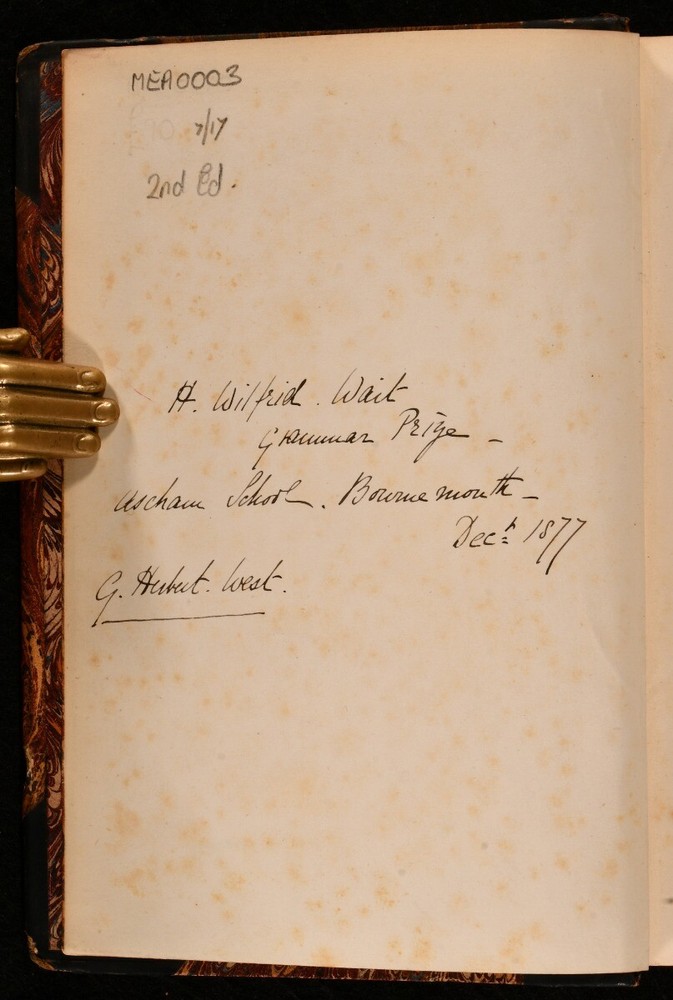 MEA0003
7/17
2nd Ed.
H. Wilfrid. Wait
Grammar Prize -
Ascham School. Bournemouth -
Decr 1877
G. Herbert. West.